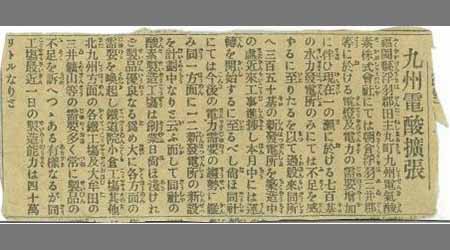 九州電酸擴張
福岡縣浮羽郡田主丸町九州電氣酸
素株式會社にては朝倉浮羽三井郡
等に於ける電燈及電力の需要增加
に伴ひ現在一の瀨に於ける七百基
の水力發電所のみにては不足を感
ずるに至りたるを以て過般來同所
へ三百五十基の新發電所を築造中
の處近來工事進捗し本月中には運
轉を開始するに至るべし尙ほ同社
にては今後の電力需要の趨勢に鑑
み同一方面に一二新發電所の新設
を計劃中なりと云ふ而して同社の
酸素製造工塲は創業日尙ほ淺けれ
ど製品優良なる爲め大に各方面の
需要を喚起し鐵道院小倉工塲其他
北九州方面の各鐵工塲及大牟田の
三井鑛山等の需要多く常に製品の
不足を訴へつゝある有樣なるが同
工塲最近一日の製造能力は四十萬
リトルなりと